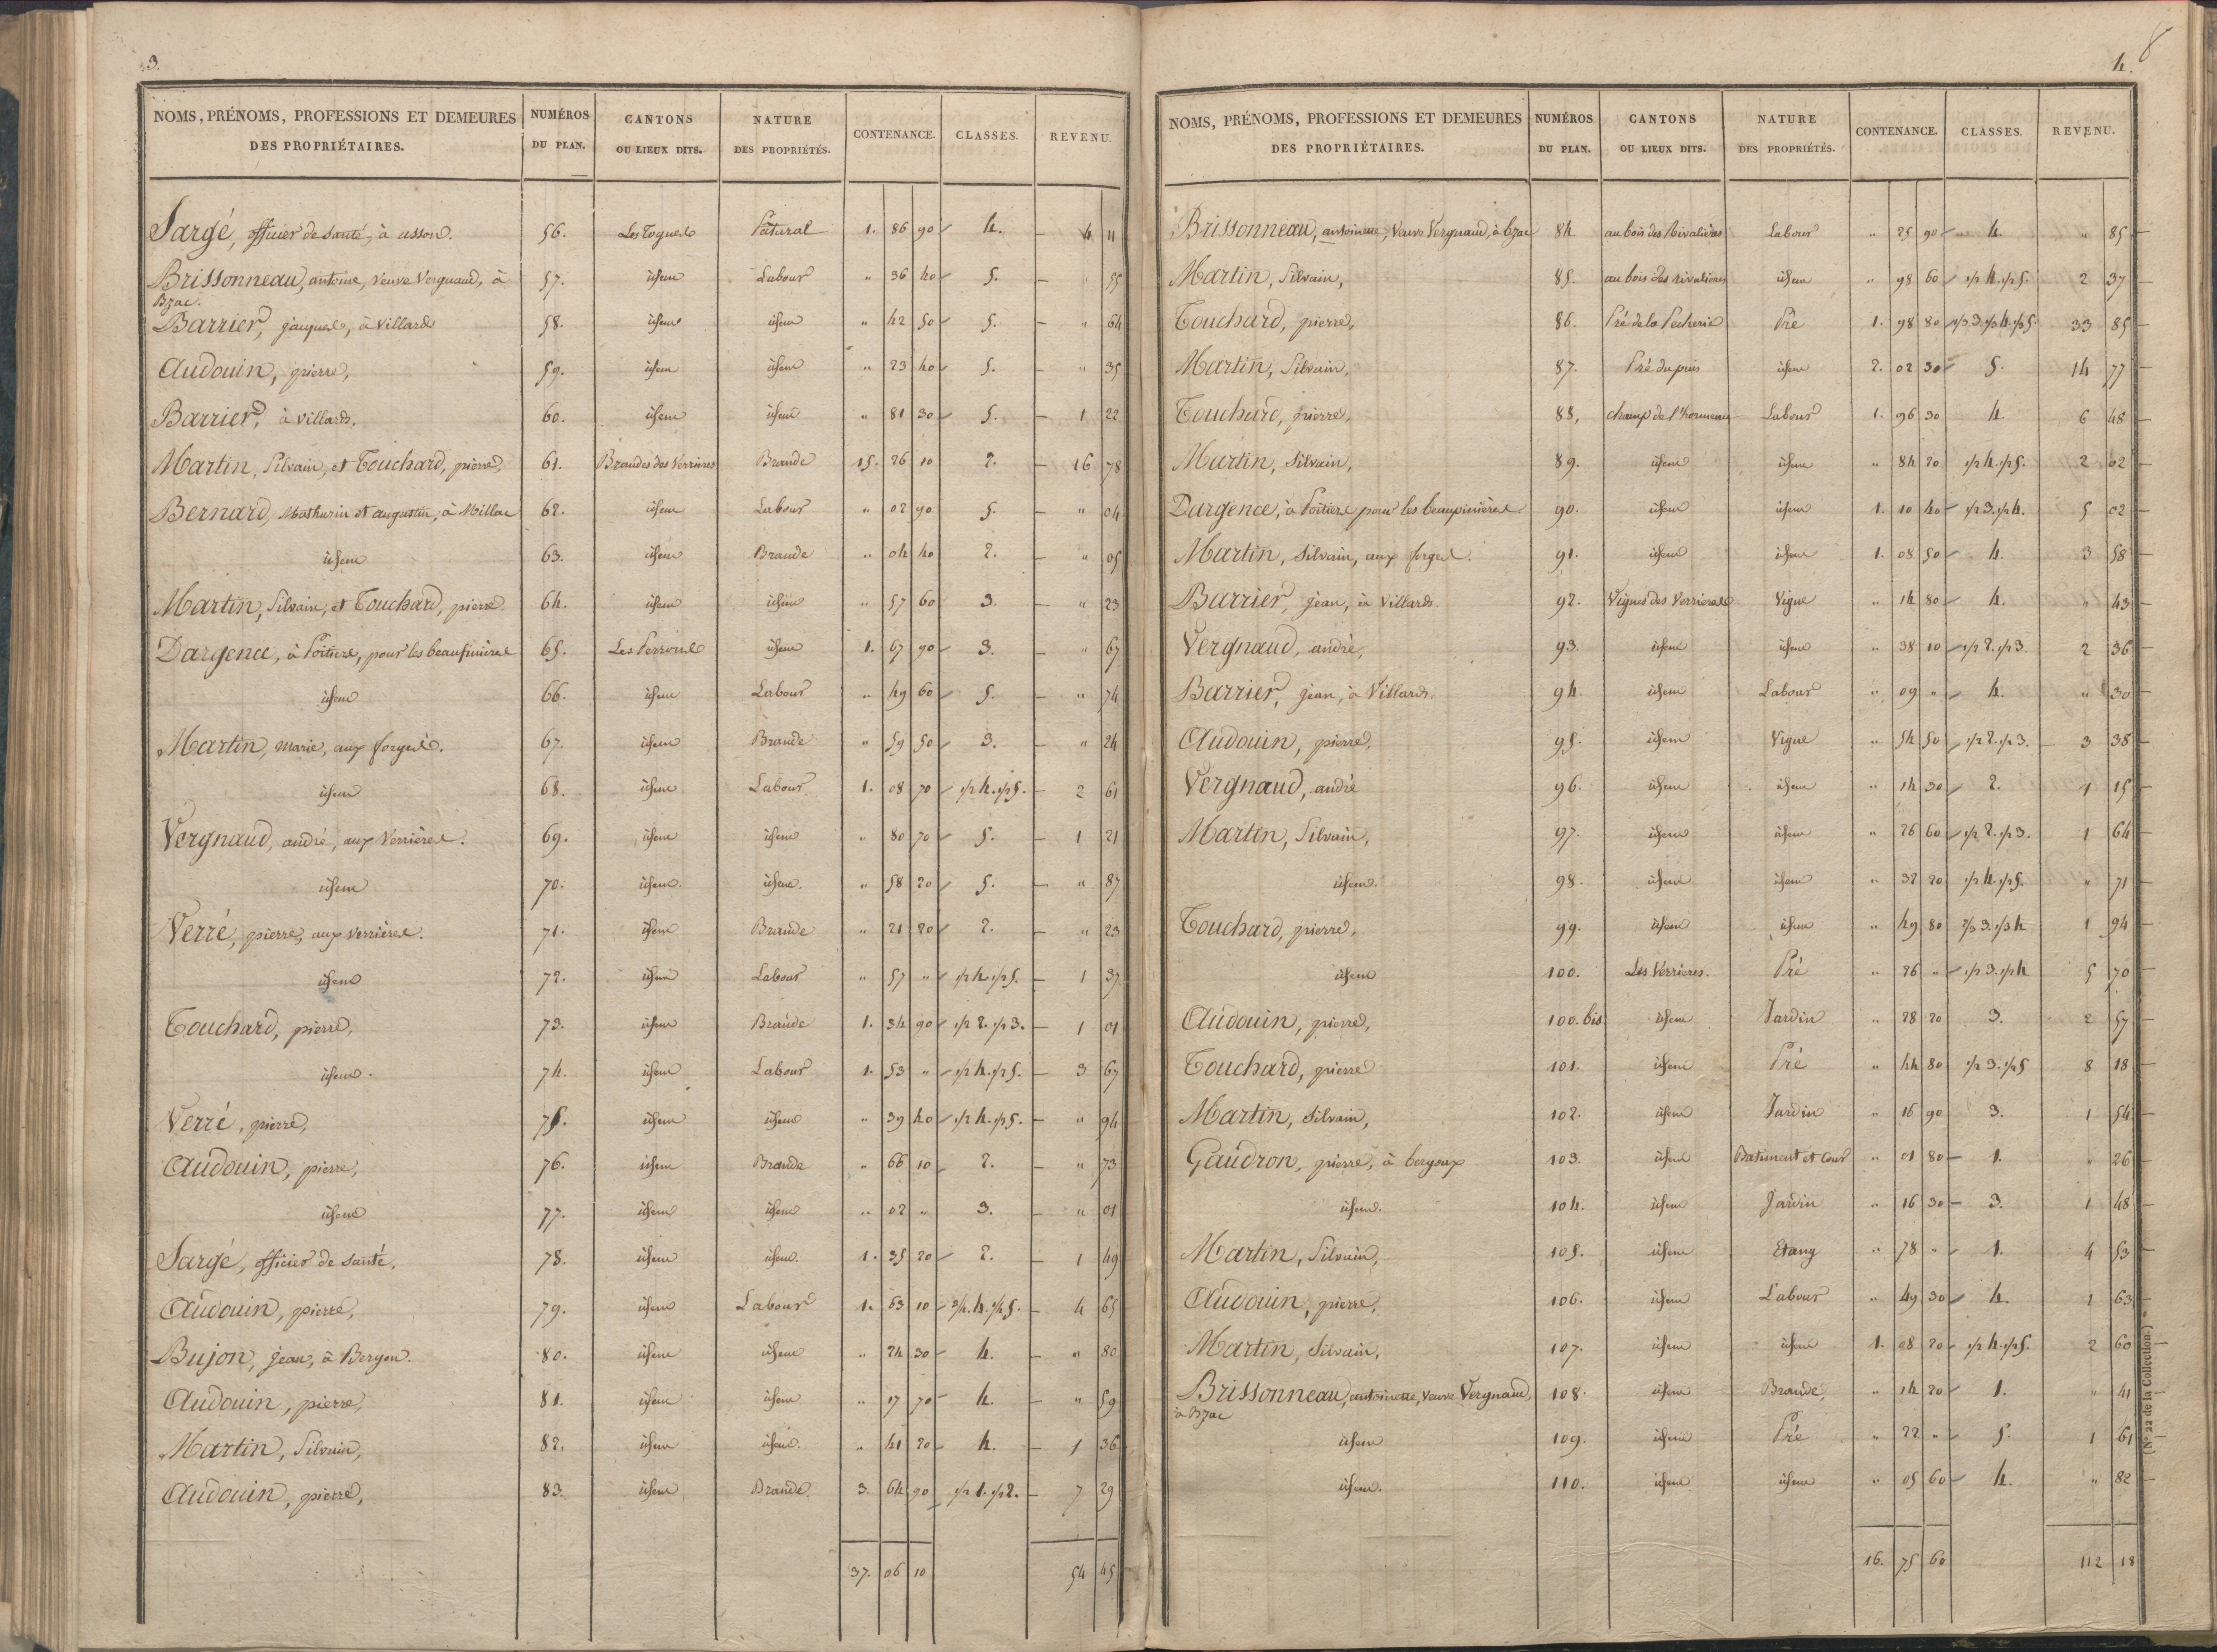 3.
NOMS, PRÉNOMS, PROFESSIONS ET DEMEURES DES PROPRIÉTAIRES. NUMÉROS DU PLAN. CANTONS OU LIEUX DITS. NATURE DES PROPRIÉTÉS. CONTENANCE. CLASSES. REVENU.
Sargé, officier de santé, à usson. 56. Patural 1. 86 90 4. 4 11
Brissonneau, antoine, veuve Vergnaud, à 57. idem Labour " 36 40 5. " 55
Bzac.
Barrier, jacques, à Villards 58. idem idem " 42 50 5. " 64
Audouin, pierre, 59. idem idem " 23 40 5. " 35
Barrier, à villards, 60. idem idem " 81 30 5. 1 22
Martin, Silvain, et Touchard, pierre, 61. Brandes des Verrieres Brande 15. 26 10 2. 16 78
Bernard, Mathurin et augustin, à Millac 62. idem Labour " 02 90 5. " 04
idem 63. idem Brande " 04 40 2. " 05
Martin, Silvain, et Touchard, pierre 64. idem idem " 57 60 3. " 23
Dargence, à Poitiers, pour les beaupinières 65. idem 1. 67 90 3. " 67
idem 66. idem Labour " 49 60 5. " 74
Martin, marie, aux forges. 67. idem Brande " 59 50 3. " 24
idem 68. idem Labour 1. 08 70 1/2 4. 1/2 5. 2 61
Vergnaud, andré, aux Verrières. 69. idem idem " 80 70 5. 1 21
idem 70. idem. idem. " 58 20 5. " 87
Verré, pierre, aux verrières. 71. idem Brande " 21 20 2. " 23
idem 72. idem Labour " 57 " 1/2 4. 1/2 5. 1 37
Touchard, pierre, 73. idem Brande 1. 34 90 1/2 2. 1/2 3. 1 01
idem. 74. idem Labour 1. 53 " 1/2 4. 1/2 5. 3 67
Verré, pierre, 75. idem idem " 39 40 1/2 4. 1/2 5. " 94
Audouin, pierre, 76. idem Brande " 66 10 2. " 73
idem 77. idem idem " 02 " 3. " 01
Sargé, officier de santé, 78. idem idem. 1. 35 20 2. 1 49
Audouin, pierre, 79. idem Labour 1. 63 10 3/4. 4. 1/4 5. 4 65
Bujon, jean, à Bergou. 80. idem idem " 24 30 4. " 80
Audouin, pierre, 81. idem idem " 17 70 4. " 59
Martin, Silvain, 82. idem idem. " 41 20 4. 1 36
Audouin, pierre, 83. idem Brande 3. 64 90 1/2 1. 1/2 2. 7 29
37. 06 10 54 45
8
4.
NOMS, PRÉNOMS, PROFESSIONS ET DEMEURES DES PROPRIÉTAIRES. NUMÉROS DU PLAN. CANTONS OU LIEUX DITS. NATURE DES PROPRIÉTÉS. CONTENANCE. CLASSES. REVENU.
Brissonneau, antoinette, Veuve Vergnaud, à bzac 84. au bois des Rivalières Labour " 25 90 4. " 85
Martin, Silvain, 85. au bois des rivalières idem " 98 60 1/2 4. 1/2 5. 2 37
Touchard, pierre, 86. Pré de la Pecherie Pré 1. 98 80 1/3 3. 1/3 4. 1/3 5. 33 85
Martin, Silvain, 87. Pré du puis idem 2. 02 30 5. 14 77
Touchard, pierre, 88, champ de l'hormeau Labour 1. 96 30 4. 6 48
Martin, Silvain, 89. idem idem " 84 20 1/2 4. 1/2 5. 2 02
Dargence, à Poitiers pour les beaupinières 90. idem idem 1. 10 40 1/2 3. 1/2 4. 5 02
Martin, Silvain, aux forges. 91. idem idem 1. 08 50 4. 3 58
Barrier, jean, à Villards. 92. Vignes des Verrieres Vigne " 14 80 4. " 43
Vergnaud, andré, 93. idem idem " 38 10 1/2 2. 1/2 3. 2 36
Barrier, jean, à Villards. 94. idem Labour " 09 " 4. " 30
Audouin, pierre, 95. idem Vigne " 54 50 1/2 2. 1/2 3. 3 38
Vergnaud, andré 96. idem idem " 14 30 2. 1 15
Martin, Silvain, 97. idem idem " 26 60 1/2 2. 1/2 3. 1 64
idem. 98. idem idem " 32 20 1/2 4. 1/2 5. " 71
Touchard, pierre, 99. idem idem " 49 80 2/3 3. 1/3 4 1 94
idem 100. Les Verrieres. Pré " 26 " 1/2 3. 1/2 4 5 70
Audouin, pierre, 100. bis idem Jardin " 28 20 3. 2 57
Touchard, pierre 101. idem Pré " 44 80 1/2 3. 1/2 5 8 18
Martin, Silvain, 102. idem Jardin " 16 90 3. 1 54
Gaudron, pierre, à bergoux 103. idem Batiment et Cour " 01 80 1. " 26
idem. 104. idem Jardin " 16 30 3. 1 48
Martin, Silvain, 105. idem Etang " 78 " 1. 4 53
Audouin, pierre, 106. idem Labour " 49 30 4. 1 63
Martin, Silvain, 107. idem idem 1. 08 20 1/2 4. 1/2 5. 2 60
Brissonneau, antoinette, veuve Vergnaud, 108. idem Brande, " 14 20 1. " 41
à Bzac
idem 109. idem Pré " 22 " 5. 1 61
idem. 110. idem idem " 05 60 4. " 82
16. 75 60 112 18
(N° 22 de la Collection.)